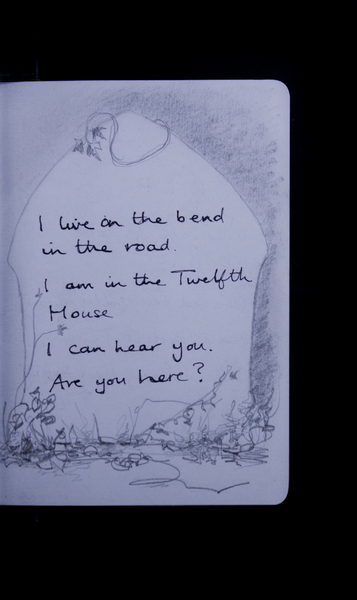 I live on the bend
in the road.
I am in the Twelfth
House
I can hear you.
Are you here?